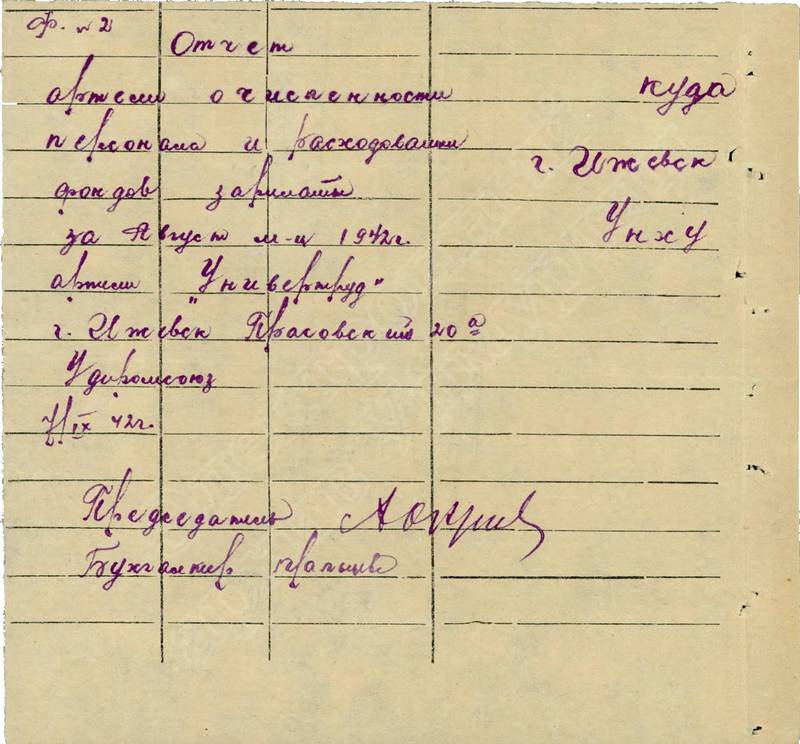 Ф. № 2
Отчет
артели о численности
персонала и расходовании
фондов зарплаты
за Август м-ц 1942г.
артели "Универтруд"
г. Ижевск 20 а
Удпромсоюз
7/IX 42г.
куда
г. Ижевск
Унху
Председатель
Бухгалтер